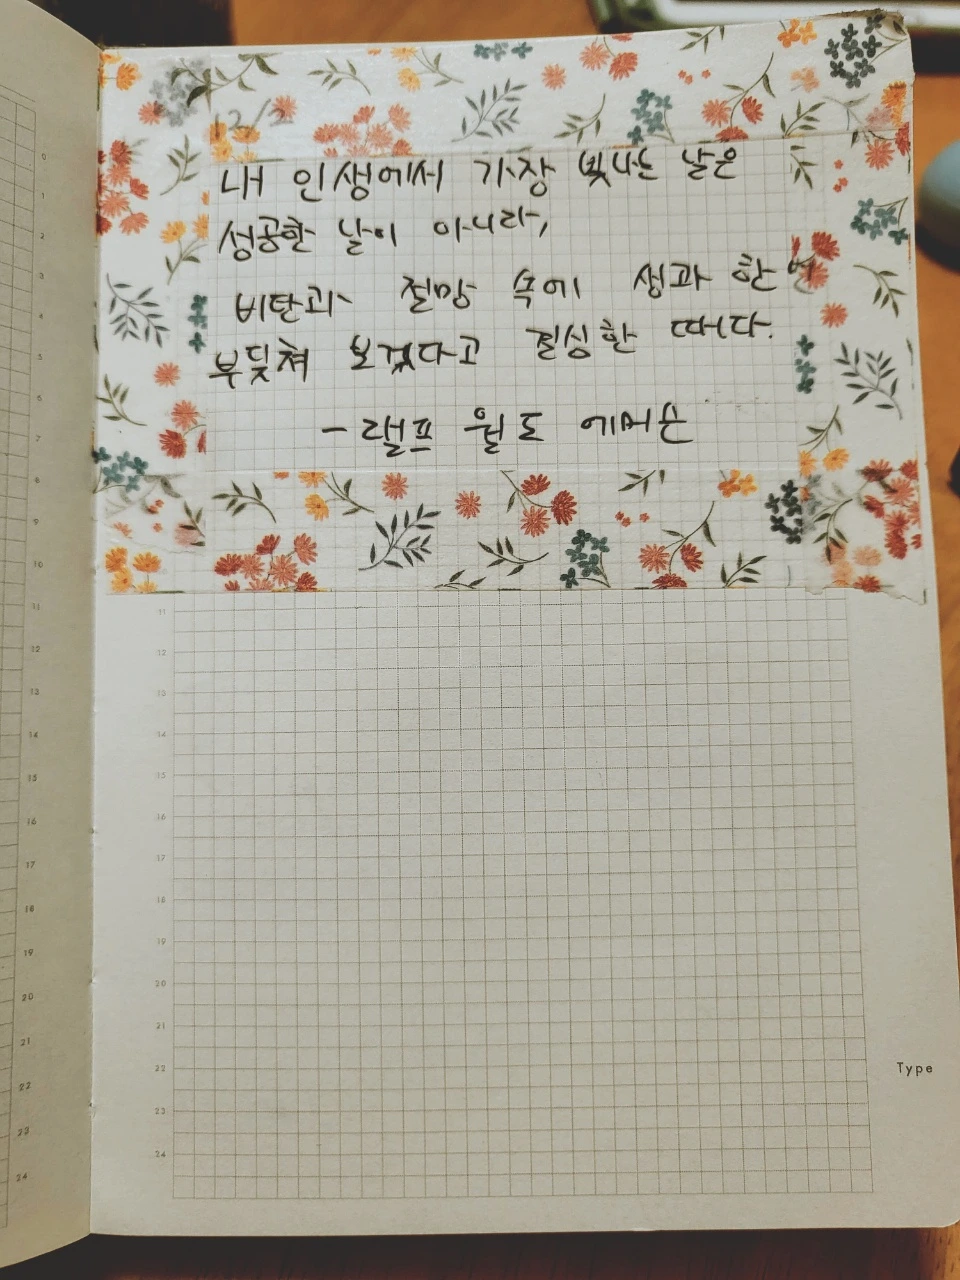 12/2
내 인생에서 가장 빛나는 날은
성공한 날이 아니라,
비탄과 절망 속에 생과 한 번
부딪쳐 보겠다고 결심한 때다.
- 랠프 월도 에머슨
0
1
2
3
4
5
6
7
8
9
10
11
12
13
14
15
16
17
18
19
20
21
22
23
24
11
12
13
14
15
16
17
18
19
20
21
22
23
24
Type